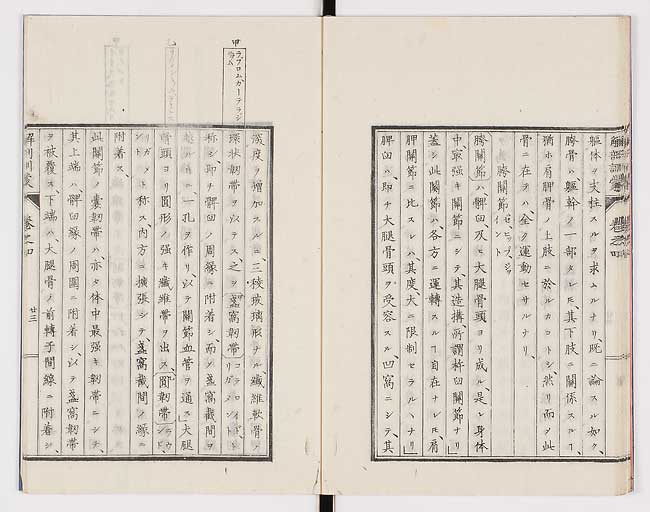 軀体ヲ支柱スルヲ求ムルナリ、既ニ論スル如ク、
胯骨ハ、軀幹ノ一部タレモ、其下肢ニ関係スルヿ、
猶ホ肩胛骨ノ上肢ニ於ルカコトシ、然リ而ヲ此
骨ニ在テハ、全ク運動セサルナリ、
胯關節 ゼ、ヒップ、ジョイント
胯關節ハ、髀臼及ヒ大腿骨頭ヨリ成ル、是レ身体
中最强キ關節ニシテ、其造搆、所謂杵臼關節ナリ
蓋シ此関節ハ、各方ニ運轉スルヿ自在ナレモ、肩
胛關節ニ比スレハ、其度大ニ限制セラルヽナリ」
髀臼ハ、即チ大腿骨頭ヲ受容スル、凹窩ニシテ、其
甲 ラブロムガーテラジ
深度ヲ増加スルニ、三稜玻璃形ナル纎維軟骨ノ
環状韌帶ヲ以テス、之ヲ盞窩韌帶
称シ、即チ髀臼ノ周緣ニ附着シ、而ノ盞窩截間ヲ
一孔ヲ作リ、以テ關節血管ヲ通ス」大腿
骨頭ヨリ圓形ノ强キ纎維帶ヲ出ス、圓韌帶
ト称ス、内方ニ擴張シテ盞窩截間ノ緣ニ
附着ス、
此關節ノ囊韌帶ハ、亦タ体中最强キ韌帶ニシテ、
其上端ハ、髀臼緣ノ周圍ニ附着シ、以テ盞窩韌帶
ヲ被覆ス、下端ハ、大腿骨ノ前轉子間線ニ附着シ、
解剖訓蒙 卷之四 廿三